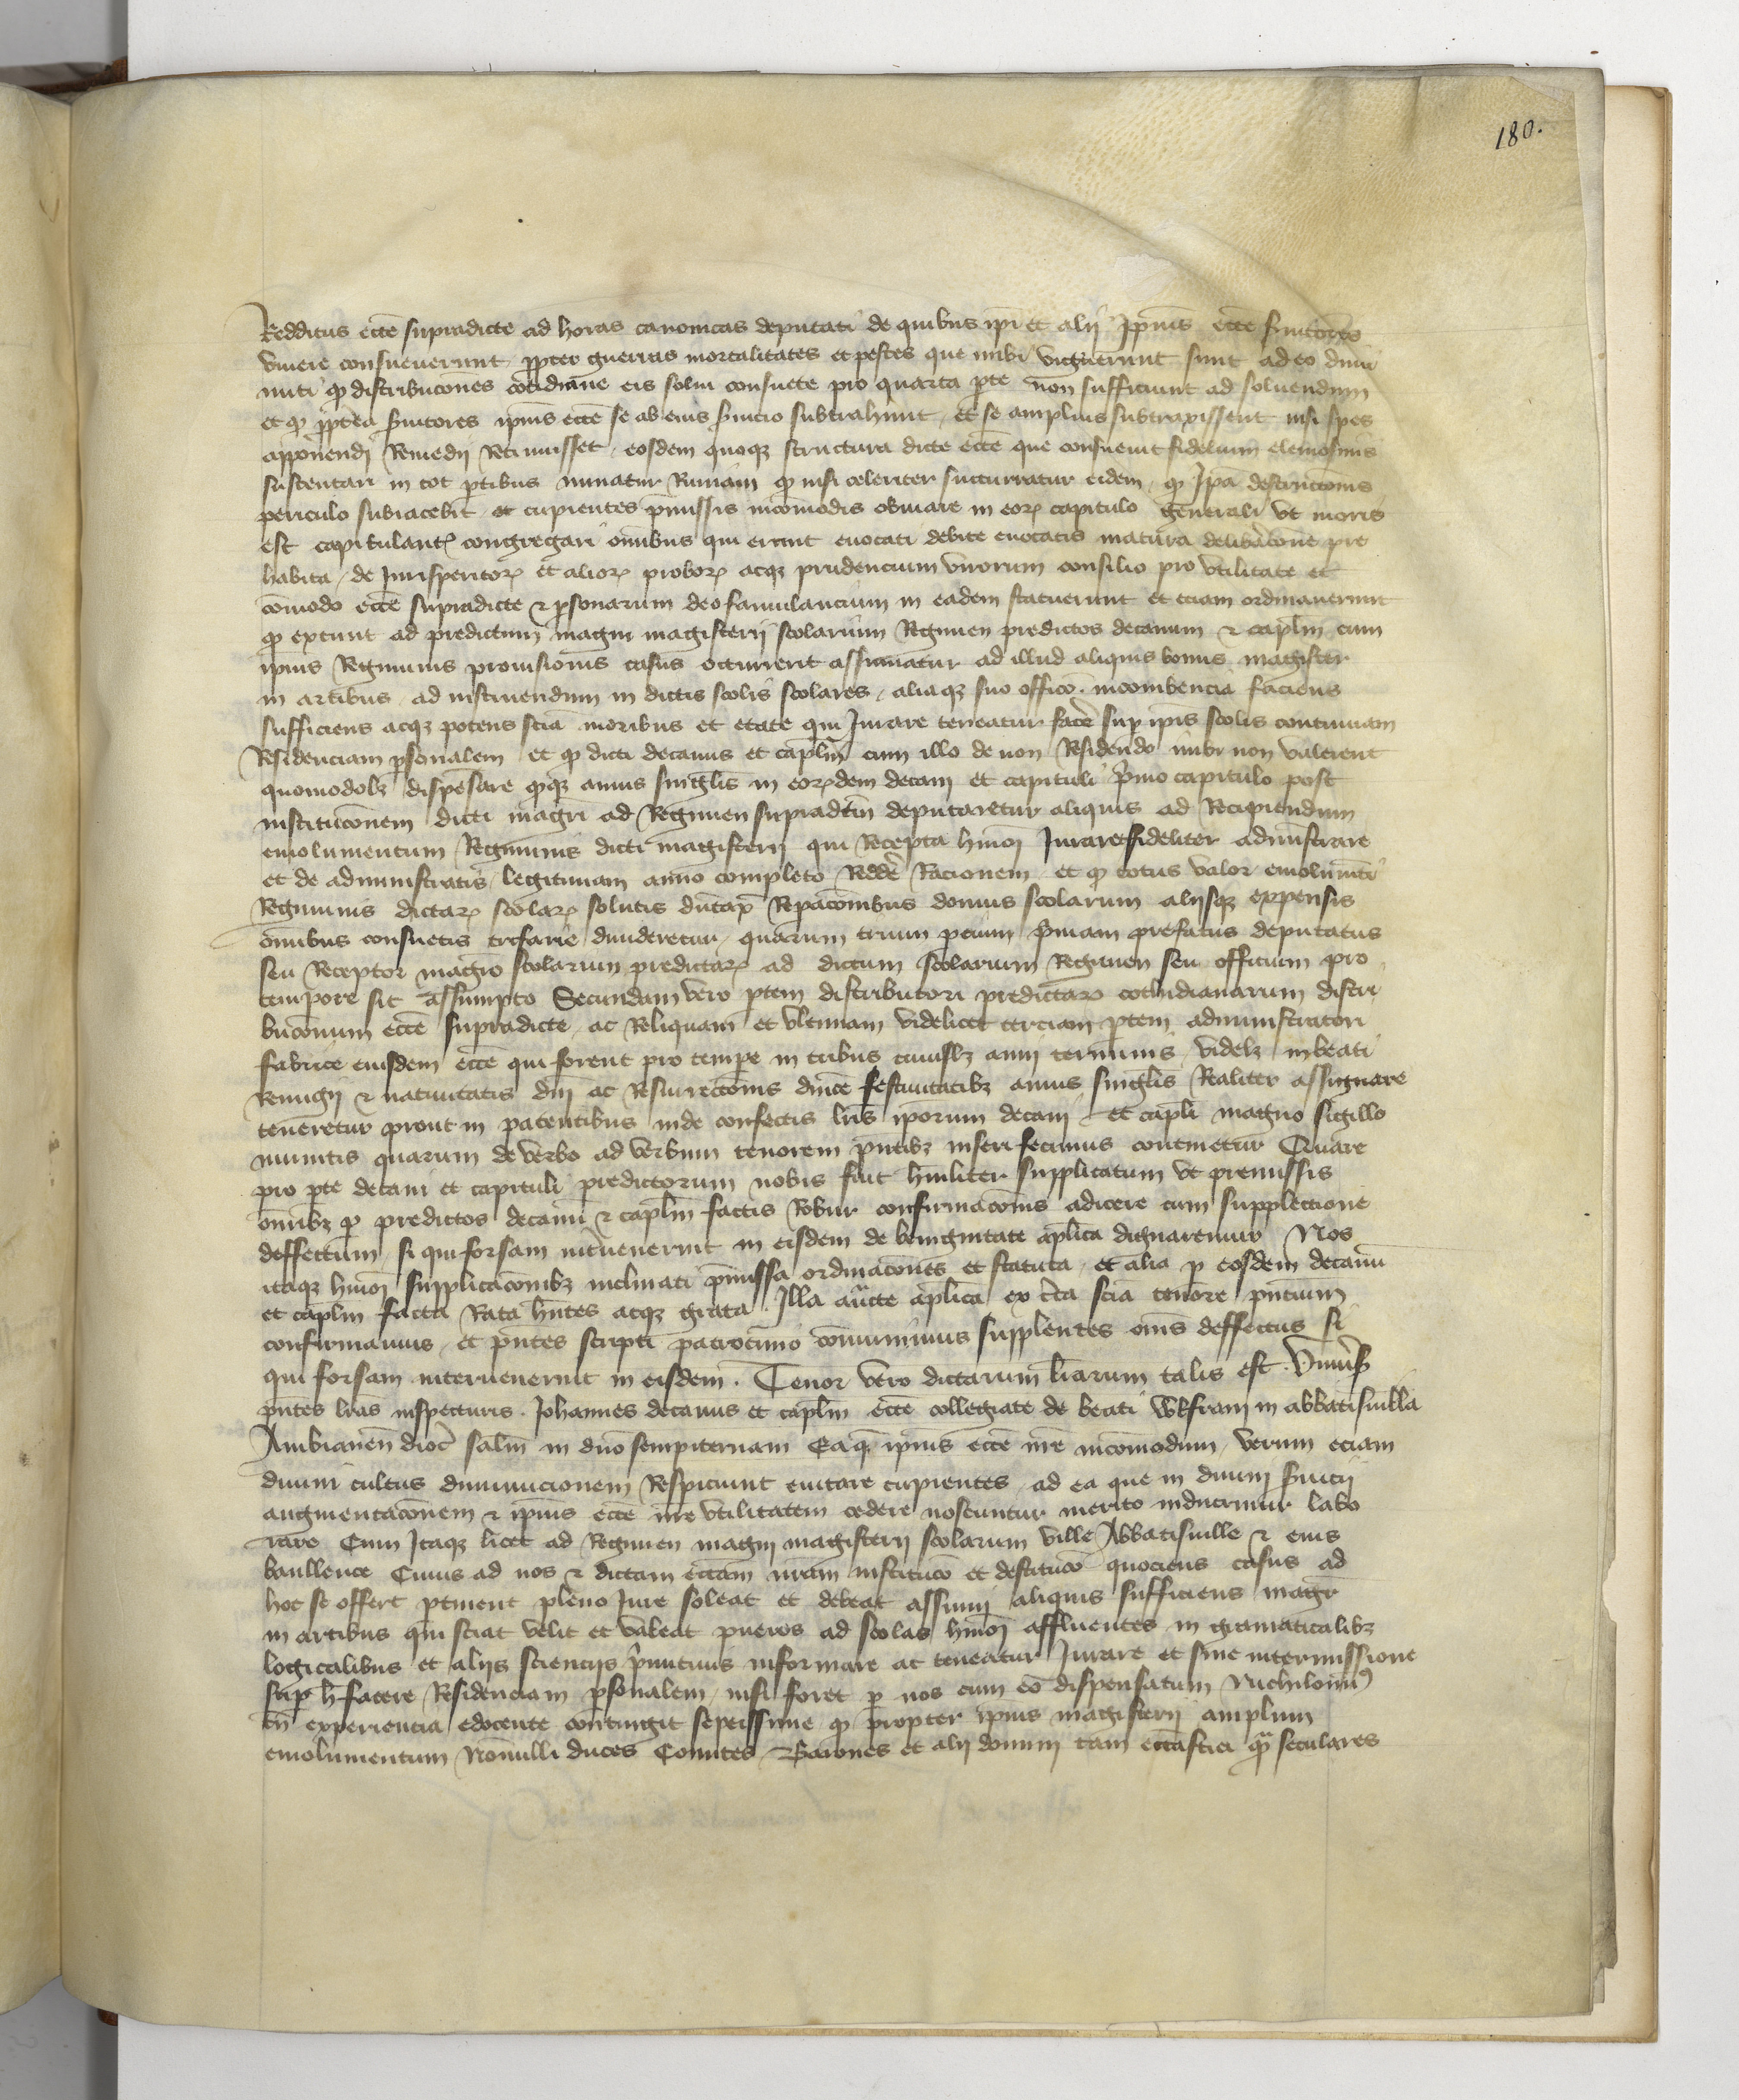 180.
Redditus eccē supradicte ad horas canonicas deputati de quibus ipi et alij ipius eccē ẜuitores
viuere consueuerunt ꝓpter guerras mortalitates et pestes que inibi viguerunt sunt adeo dimi
nuti ꝙ distribucōnes cotidiane eis solui consuete pro quarta ꝑte non sufficiunt ad soluendum
et ꝙ ꝓptea ẜuitores ipius eccē se ab eius ẜuicio subtrahunt et se amplius subtraxissent nisi spes
apponendi Remedij Retinuisset eosdem quoqꝫ structura dicte eccē que consueuit fidelium elemosinis
sustentari in tot ꝑtibus minatur Ruinam ꝙ nisi celeriter succurratur eidem ꝙ Ipā destructōnis
periculo subiacebit et cupientes p̄missis incōmodis obuiare in eoꝝ capitulo generali vt moris
est capitulantꝭ congregari om̄ibus qui erant euocati debite euocatis matura delibācōne pre
habita de Iurisperitoꝝ et alioꝝ proboꝝ acqꝫ prudencium virorum consilio pro vtilitate et
cōmodo eccē supradicte ⁊ ꝑsonarum deo famulancium in eadem statuerunt et eciam ordinauerunt
ꝙ extunc ad predictum magni magisterij scolarum Regimen predictos decanum ⁊ caplm̄ cum
ipius Regiminis prouisionis casus occurrerit assumatur ad illud aliquis bonus magister
in artibus ad instruendum in dictis scolis scolares aliaqꝫ suo officō incombencia faciens
sufficiens acqꝫ potens scīa moribus et etate qui Iurare teneatur facēr suꝑ ipīs scolis continuam
Residenciam ꝑsonalem et ꝙ dicti decanus et caplm̄ cum illo de non Residendo inibi non valerent
quomodolꝫ dispensare ꝙqꝫ annis singlis in eoꝝdem decani et capituli ṗmo capitulo post
institucōnem dicti magr̄i ad Regimen supradc̄m deputaretur aliquis ad Recipiendum
emolumentum Regiminis dicti magisterij qui Recepta hmōi Iuraret fideliter administrare
et de administratis legitimam anno completo Reddēr Racionem et ꝙ totus valor emolumēti
Regiminis dictaꝝ scolaꝝ solutis dūtax̄ Repacōnibus domus scolarum alijsqꝫ expensis
om̄ibus consuetis trifarie diuideretur quarum trium ꝑcium ṗmam prefatus deputatus
seu Receptor magr̄o scolarum predictaꝝ ad dictum scolarum Regimen seu officium pro
tempore sit assumpto Secundam vero ꝑtem distributori predictaꝝ cothidianarum distri
bucōnum eccē supradicte ac Reliquam et vltimam videlicet terciam ꝑtem administratori
fabrice eiusdem eccē qui forent pro tempe in tribus cuiuslꝫ anni terminis videlꝫ in beati
Remigij ⁊ natiuitatis dn̄i ac Resurrectōnis dn̄ice festiuitatibꝫ annis singlis Realiter assignare
teneretur prout in patentibus inde confectis lr̄is ip̄orum decani et capli magno sigillo
munitis quarum de verbo ad verbum tenorem pn̄tibꝫ inseri fecimus continetur Quare
pro ꝑte decani et capituli predictorum nobis fuit hūiliter supplicatum vt premissis
om̄ibꝫ ꝑ predictos decanū ⁊ caplm̄ factis Robur confirmacōnis adicere cum supplectione
deffectum si qui forsam intueuenerint in eisdem de benignitate aplīca dignaremur Nos
itaqꝫ hmōi supplicacōnibꝫ inclinati p̄missa ordinacōnes et statuta et alia ꝑ eosdem decanū
et caplm̄ facta Rata hn̄tes acqꝫ grata Illa aucte aplīca ex c̄ta scīa tenore pn̄cium
confirmamus et pn̄tes scripti patrocinio cōmunimus supplentes om̄s deffectus si
qui forsam interuenerint in eisdem. Tenor vero dictarum lr̄arum talis est. Vniuˀẜ
pn̄tes lr̄as inspecturis. Johannes decanus et caplm̄ eccē collegiate de beati Wlfranj in abbatisuilla
Ambianen̄ dioc̄ salm̄ in dn̄o sempiternam Ea q̄ ipius eccē nr̄e incōmodum verum eciam
diuini cultus diminucionem Respiciunt euitare cupientes ad ea que in diuinj ẜuicij
augmentacōnem ⁊ ipius eccē nr̄e vtilitatem cedere noscuntur merito inducimur labo
rare Cum Itaqꝫ licet ad Regimen magnj magisterij scolarum ville Abbatisuille ⁊ eius
banllence Cuius ad nos ⁊ dictam eccām nr̄am institucō et destitucō quociens casus ad
hoc se offert ꝑtinent pleno Iure soleat et debeat assumj aliquis sufficiens magr̄
in artibus qui sciat velit et valeat pueros ad scolas hmōi affluentes in gramaticalibꝫ
logicalibus et alijs sciencijs ṗmitiuis informare ac teneatur Iurare et sine intermissione
suꝑ h̄ facere Residenciam ꝑsonalem nisi foret ꝑ nos cum eo dispensatum Nichilominꝰ
tn̄ experiencia edocente contingit sepissime ꝙ propter ipius magisterij amplum
emolumentum Nōnulli duces Comites Barones et alij domini tam eccastici qᷓ seculares